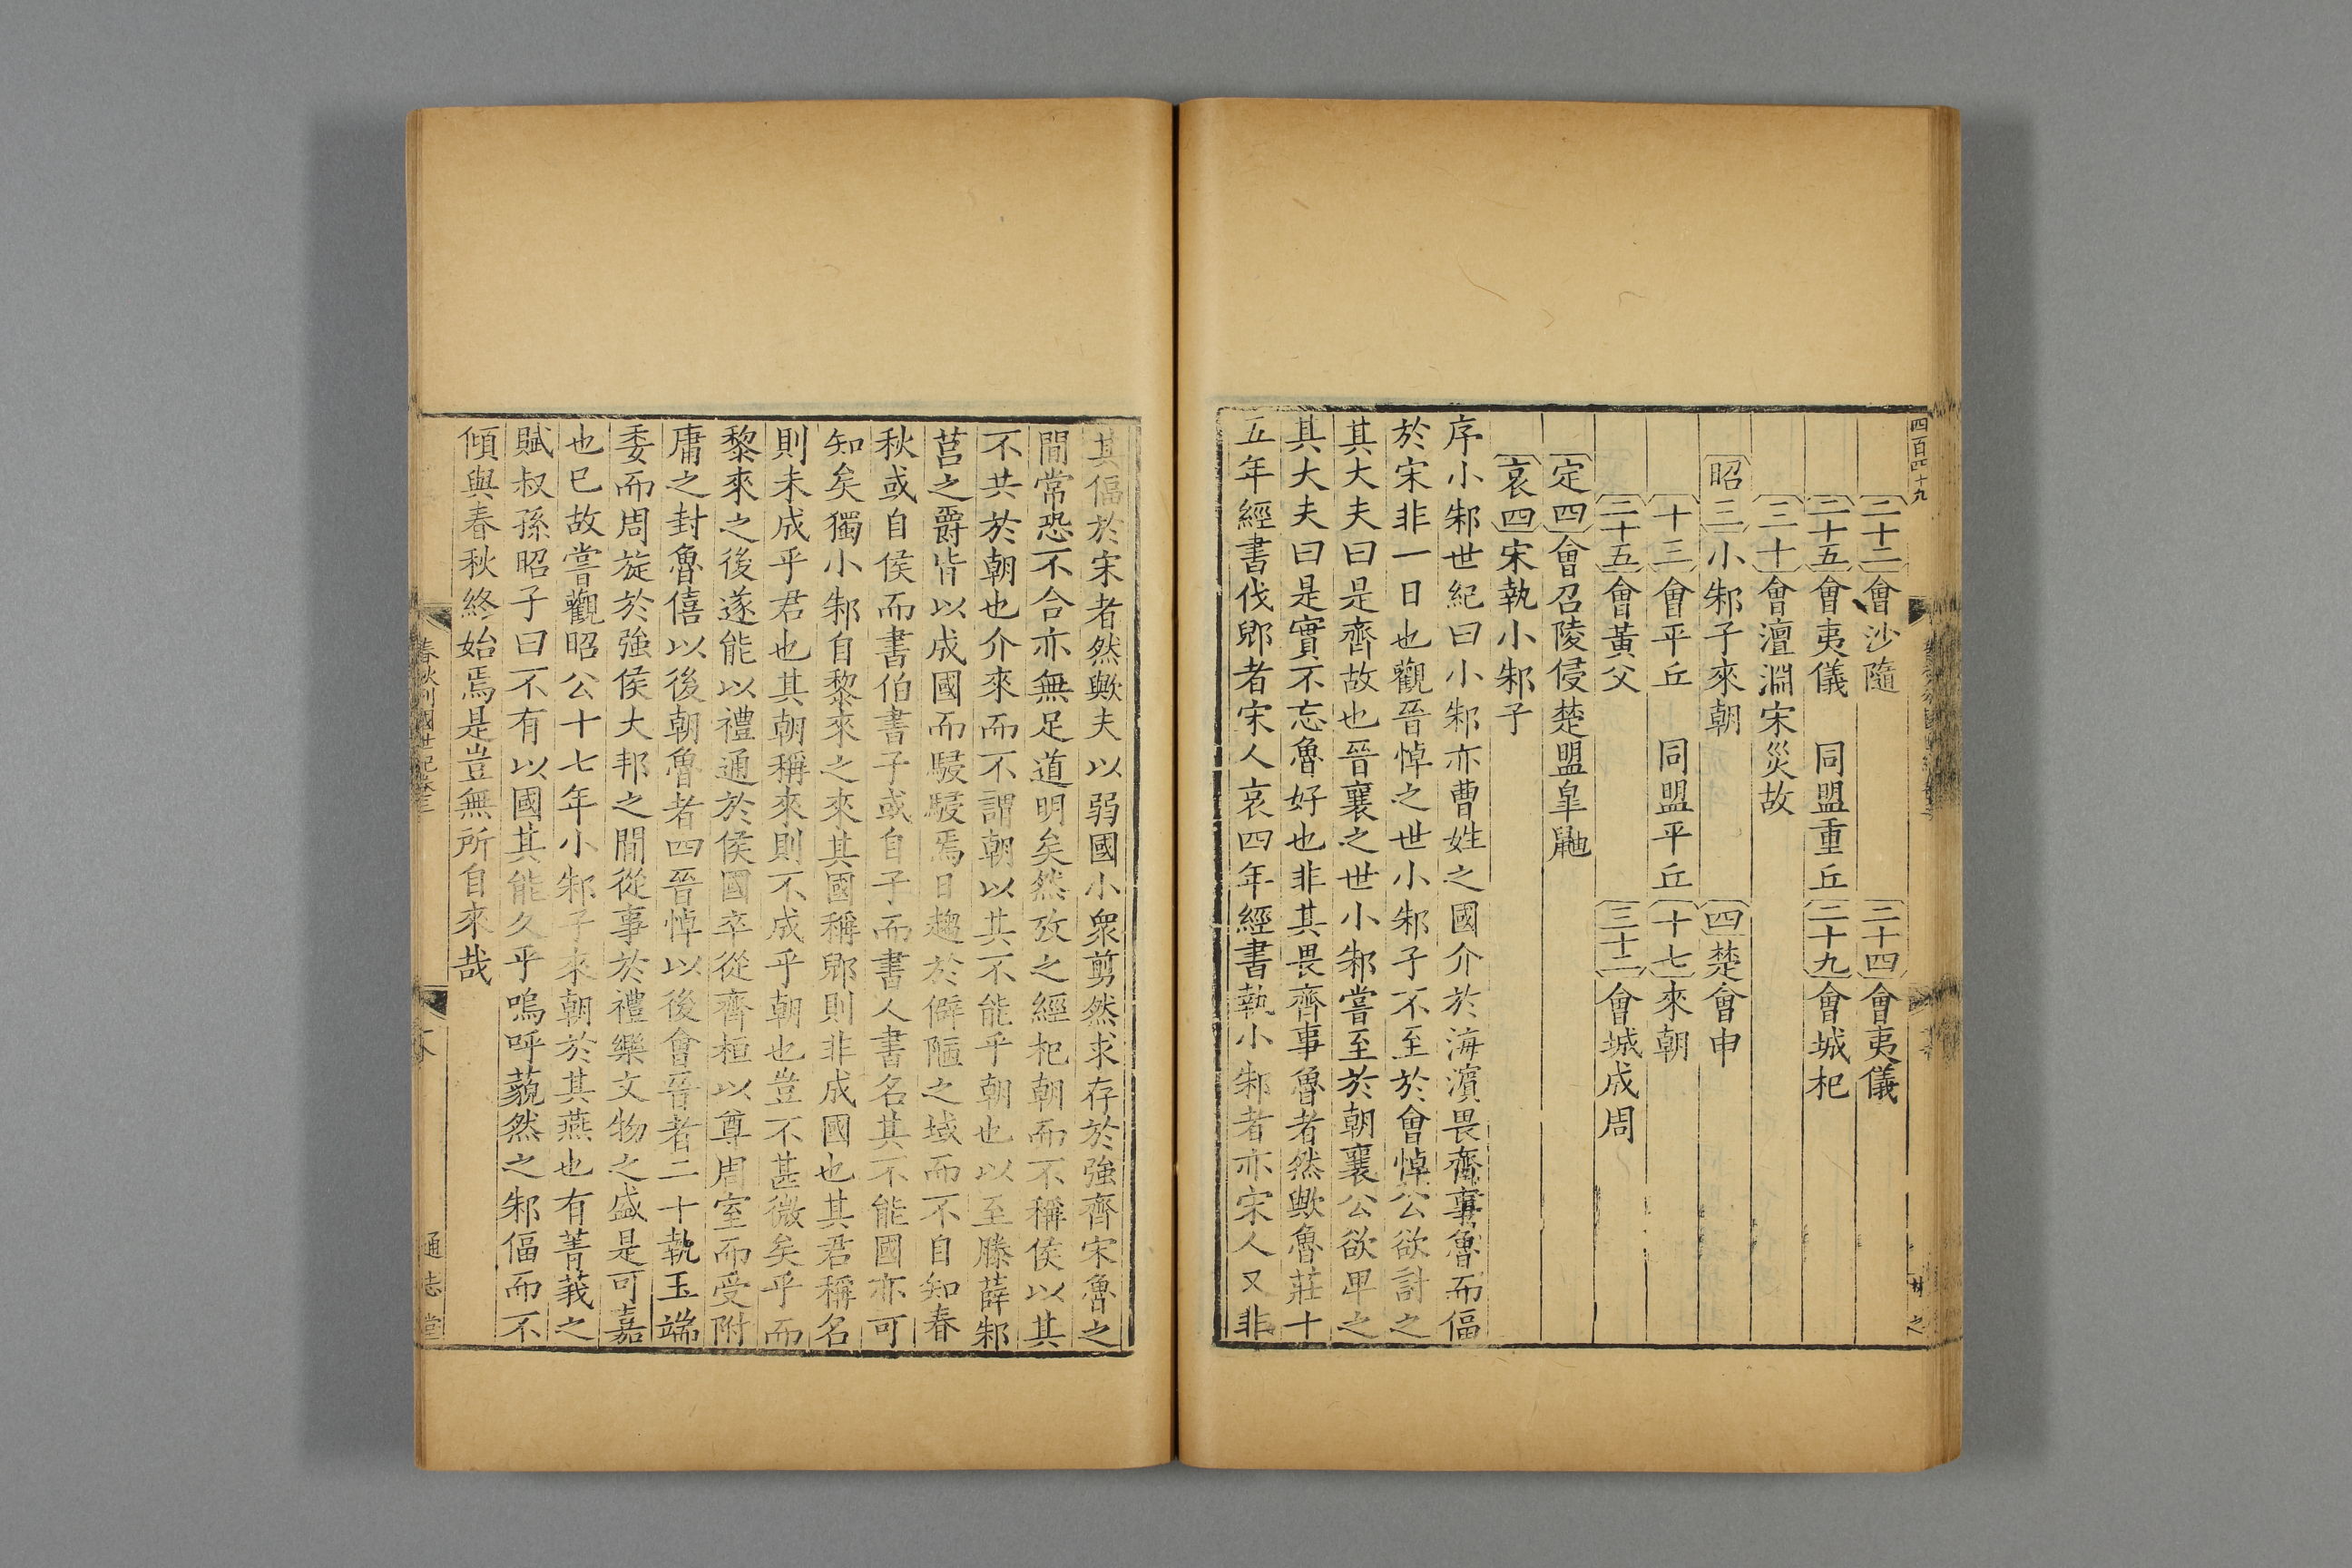 四百四十九
二十二會沙隨 二十四會夷儀
二十五會夷儀 同盟重丘 二十九會城杞
三十會澶淵宋災故
昭三小邾子來朝 四楚會申
十三會平丘 同盟平丘 十七來朝
二十五會黃父 三十二會城成周
定四會召陵侵楚盟臯鼬
哀四宋執小邾子
序小邾世紀曰小邾亦曹姓之國介於海濵畏齊事魯而偪
於宋非一日也觀晉悼之世小邾子不至於會悼公欲討之
其大夫曰是齊故也晉襄之世小邾嘗至於朝襄公欲卑之
其大夫曰是實不忘魯好也非其畏齊事魯者然歟魯莊十
五年經書伐郳者宋人哀四年經書執小邾者亦宋人又非
其偪於宋者然歟夫以弱國小衆剪然求存於強齊宋魯之
間常恐不合亦無足道明矣然攷之經杞朝而不稱侯以其
不共於朝也介來而不謂朝以其不能乎朝也以至滕薛邾
莒之爵皆以成國而駸駸焉日趨於僻陋之域而不自知春
秋或自侯而書伯書子或自子而書人書名其不能國亦可
知矣獨小邾自黎來之來其國稱郳則非成國也其君稱名
則未成乎君也其朝稱來則不成乎朝也豈不甚微矣乎而
黎來之後遂能以禮通於侯國卒從齊桓以尊周室而受附
庸之封魯僖以後朝魯者四晉悼以後會晉者二十執玉端
委而周旋於強侯大邦之間從事於禮樂文物之盛是可嘉
也已故嘗觀昭公十七年小邾子來朝於其燕也有菁莪之
賦叔孫昭子曰不有以國其能久乎嗚呼藐然之邾偪而不
傾與春秋終始焉是豈無所自來哉
春秋列國世紀卷三
通志堂